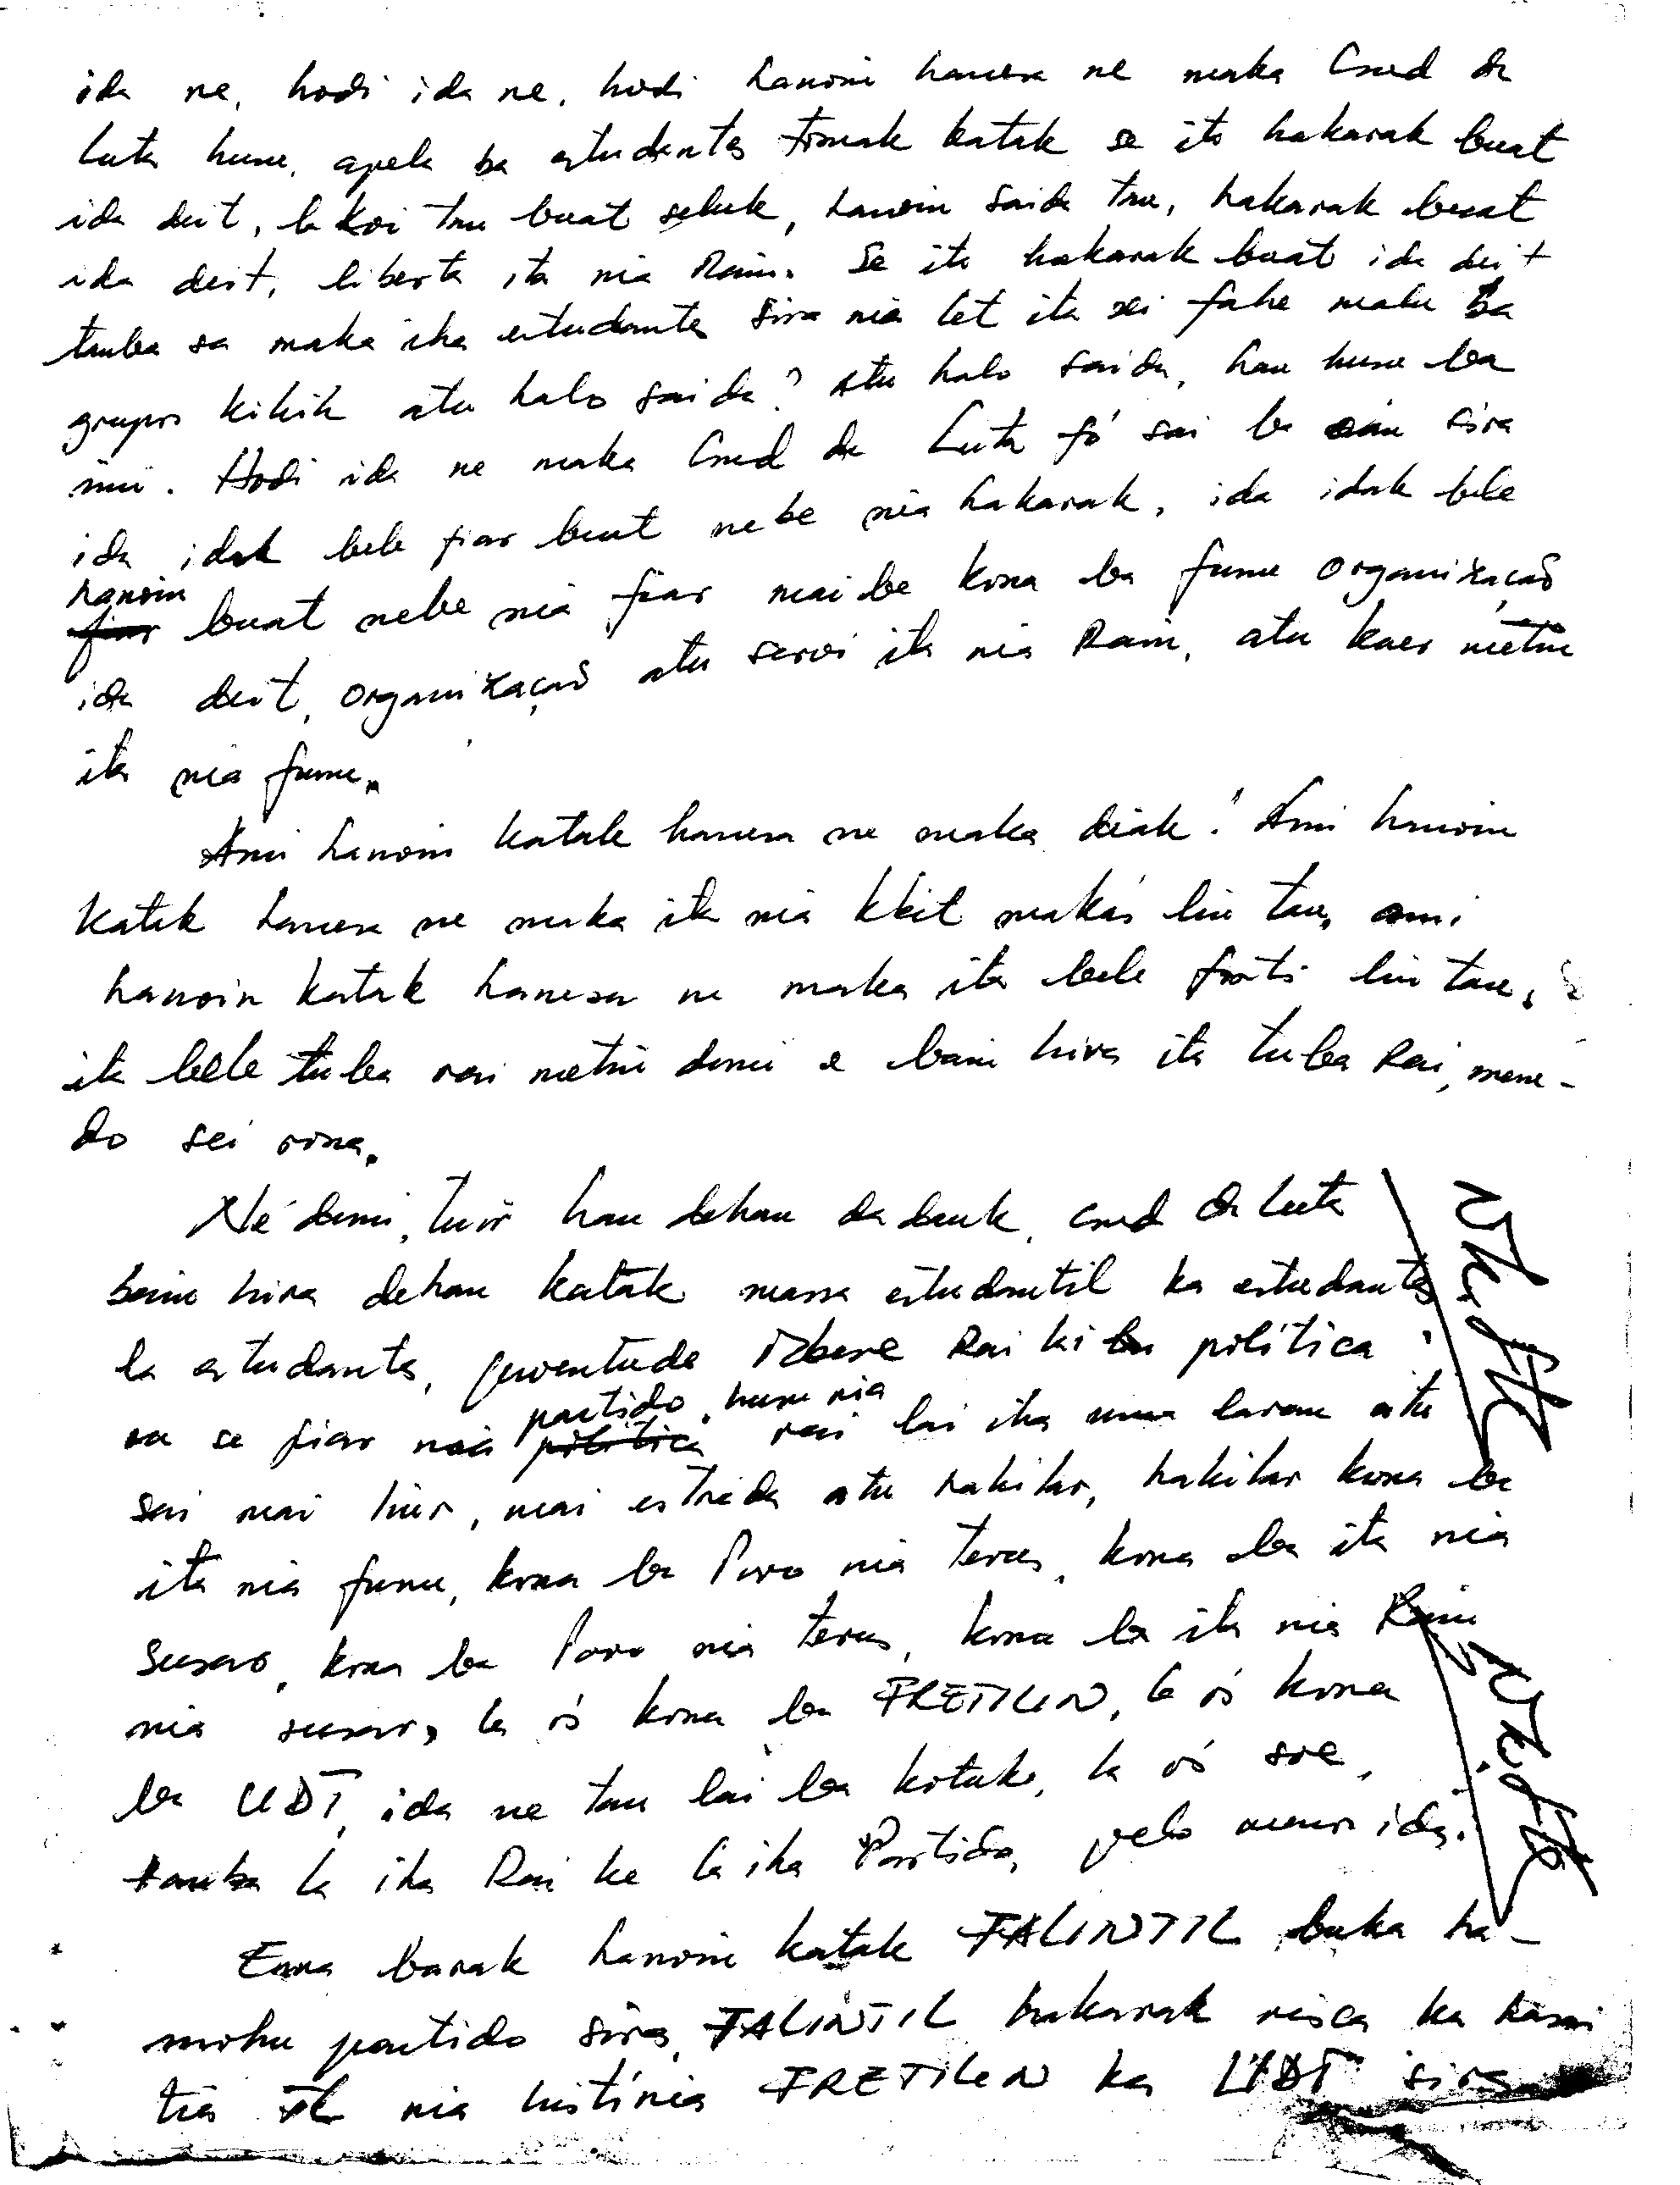 ida ne, hodi ida ne, hodi hanoin hanesa ne maka Cmd da
Luta husu, apela ba estudantes tomak katak se ita hakarak buat
ida deit, la koi tan buat seluk, hanoin saida tan, hakarak buat
ida deit, liberta ita nia Rain. Se ita hakarak buat ida deit
tanba sa maka iha estudantes sira nia let ita sei fahe malu ba
grupos kikik atu halo saida? Atu halo saida, hau husu ba
imi. Hodi ida ne maka Cmd da Luta fó sai ba sira
ida idak bele fiar buat nebe nia hakarak, ida idak bele
hanoin
buat nebe nia fiar mai be kona ba funu organização
ida deit, organização atu servi ita nia Rain, atu kaer metin
ita nia funu.
Ami hanoin katak hanesa ne maka diak! Ami hanoin
katak hanesa ne maka ita nia kbit makás liu tan, ami
hanoin katak hanesa ne maka ita bele forti liu tan,
ita bele tuba rai metin duni e bain hira ita tuba Rai, mun-
do sei rona.
Né duni, tuir hau dehan dadauk, Cmd da Luta
bain hira dehan katak massa estudantil ka estudantes
la estudantes, juventude Mbere Rai hila política
sa se fiar nia partido, husu nia
política rai lai iha uma laran atu
sai mai liur, mai estrada atu hakilar, hakilar kona ba
ita nia funu, kona ba Povo nia terus, kona ba ita nia
susar, kona ba Povo nia terus, kona ba ita nia Rain
nia susar, la ós kona ba FRETILIN, la ós kona
ba UDT, ida ne tau lai ba kotuk, la ós soe,
tanba la iha Rai ke la iha Partido, pelo menos ida.
Ema barak hanoin katak FALINTIL buka ha-
mohu partido sira, FALINTIL hakarak risca ka hasai
tia nia história FRETILIN ka UDT sira